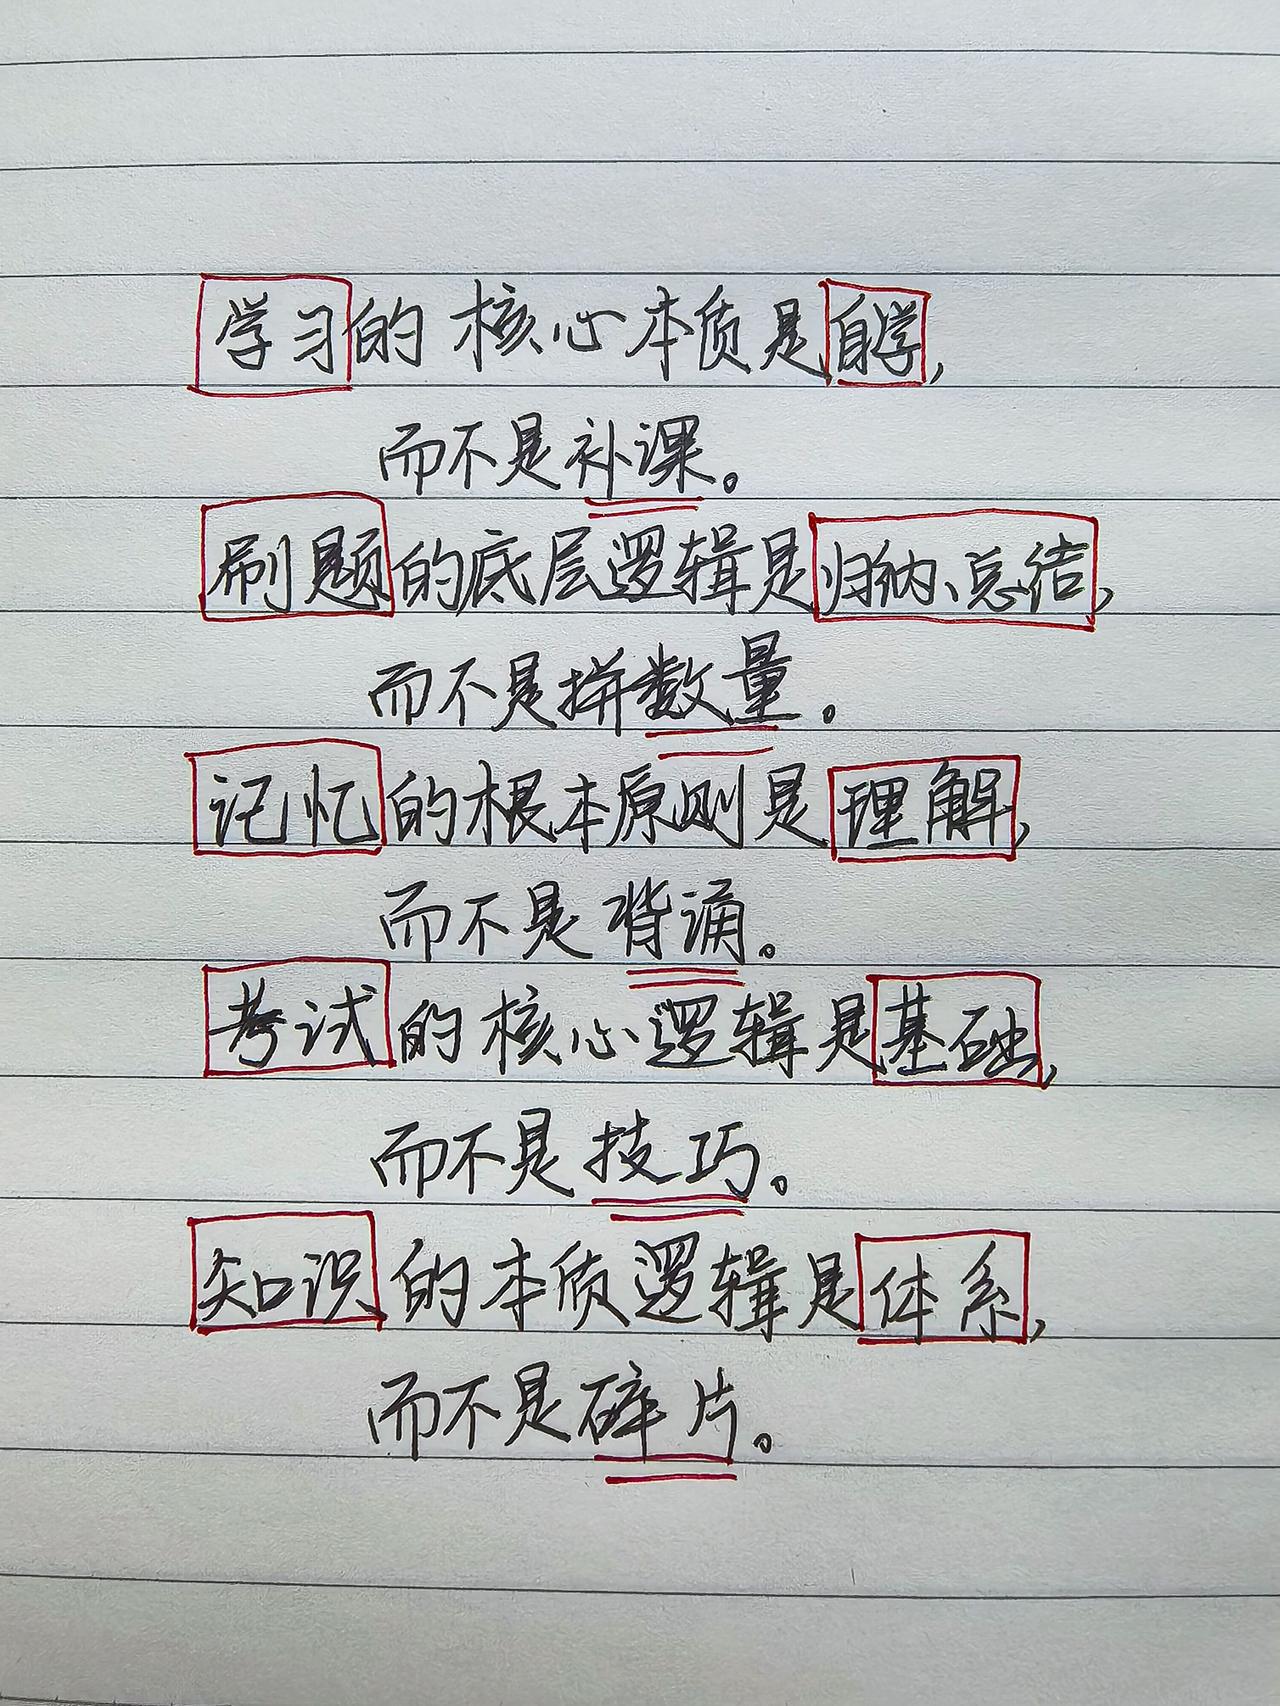 学习的核心本质是自学,
而不是补课。
刷题的底层逻辑是归纳、总结,
而不是拼数量。
记忆的根本原则是理解,
而不是背诵。
考试的核心逻辑是基础,
而不是技巧。
知识的本质逻辑是体系,
而不是碎片。